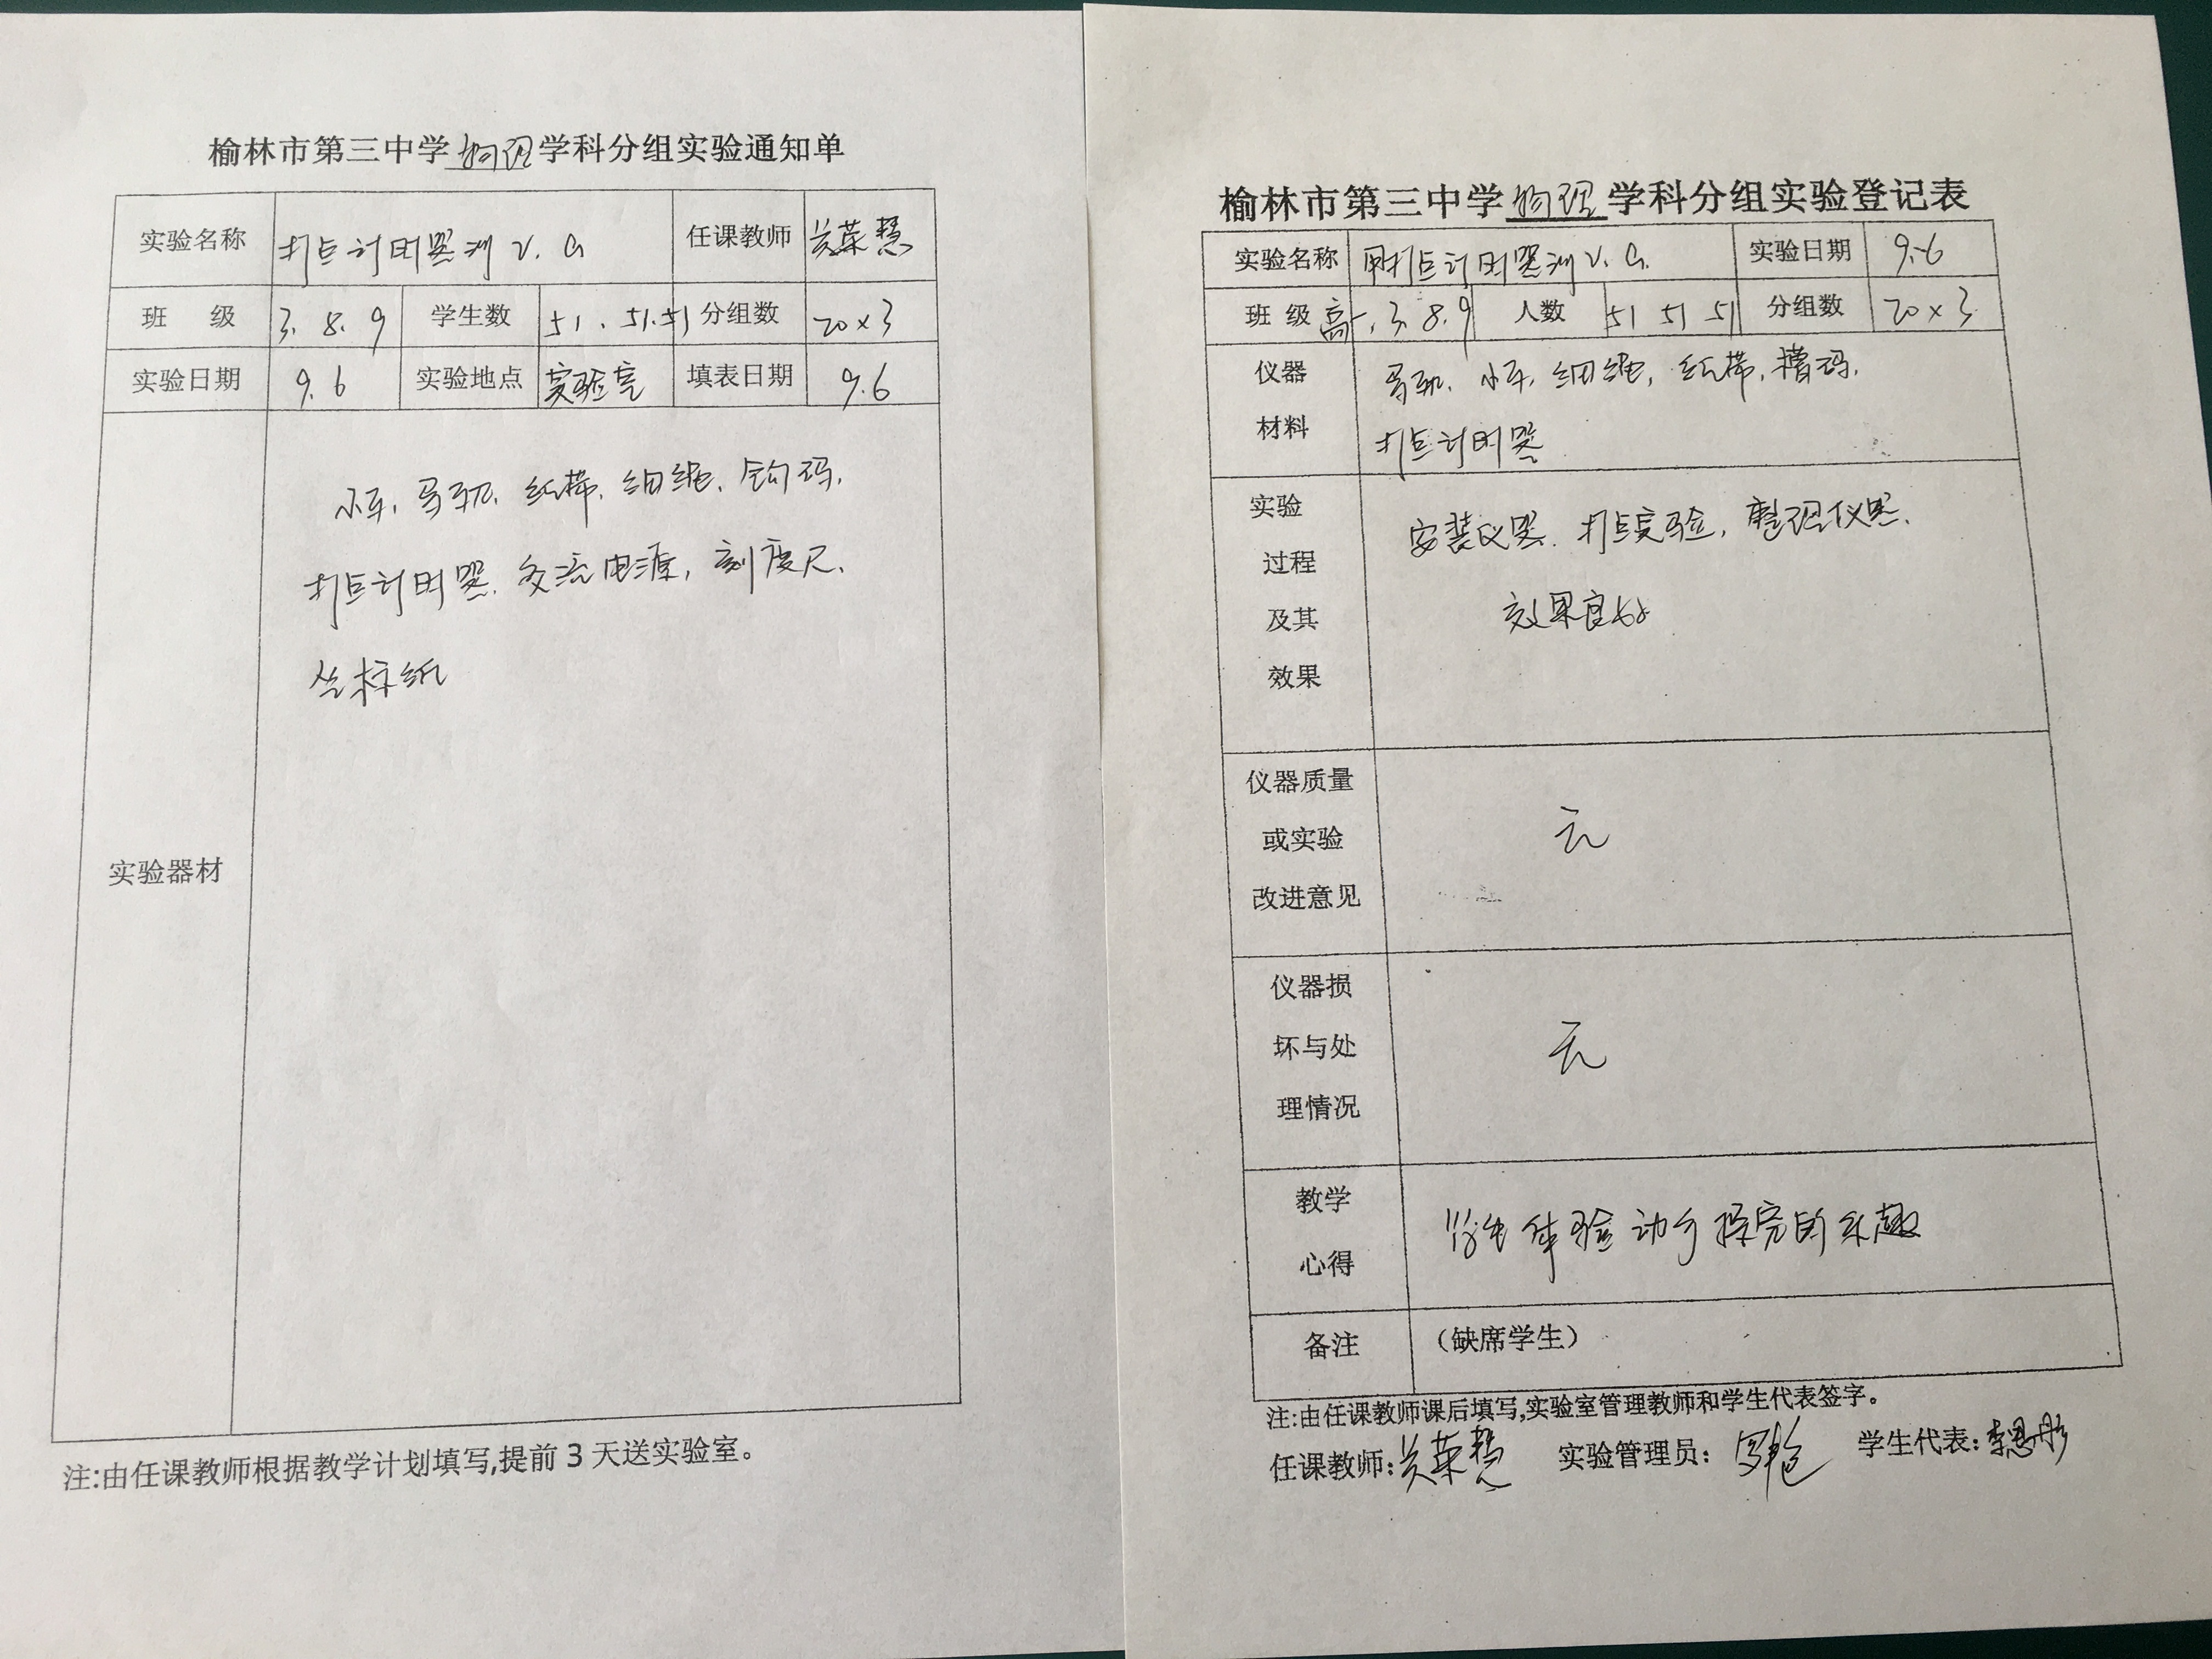 榆林市第三中学物理学科分组实验通知单
实验名称 打点计时器测 v. a 任课教师 荣慧
班 级 3. 8. 9 学生数 51. 51. 51 分组数 20×3
实验日期 9.6 实验地点 实验室 填表日期 9.6
实验器材
小车. 导轨. 纸带. 细绳. 钩码.
打点计时器. 交流电源, 刻度尺.
坐标纸
注:由任课教师根据教学计划填写,提前 3 天送实验室。
榆林市第三中学物理学科分组实验登记表
实验名称 用打点计时器测 v. a. 实验日期 9.6
班 级 高一. 3. 8. 9 人数 51 51 51 分组数 20×3
仪器
材料
导轨. 小车. 细绳, 纸带, 槽码.
打点计时器
实验
过程
及其
效果
安装仪器. 打点实验, 整理仪器.
效果良好
仪器质量
或实验
改进意见
无
仪器损
坏与处
理情况
无
教学
心得
学生体验动手探究的乐趣
备注 (缺席学生)
注:由任课教师课后填写,实验室管理教师和学生代表签字。
任课教师: 荣慧 实验管理员: 学生代表: 李思彤